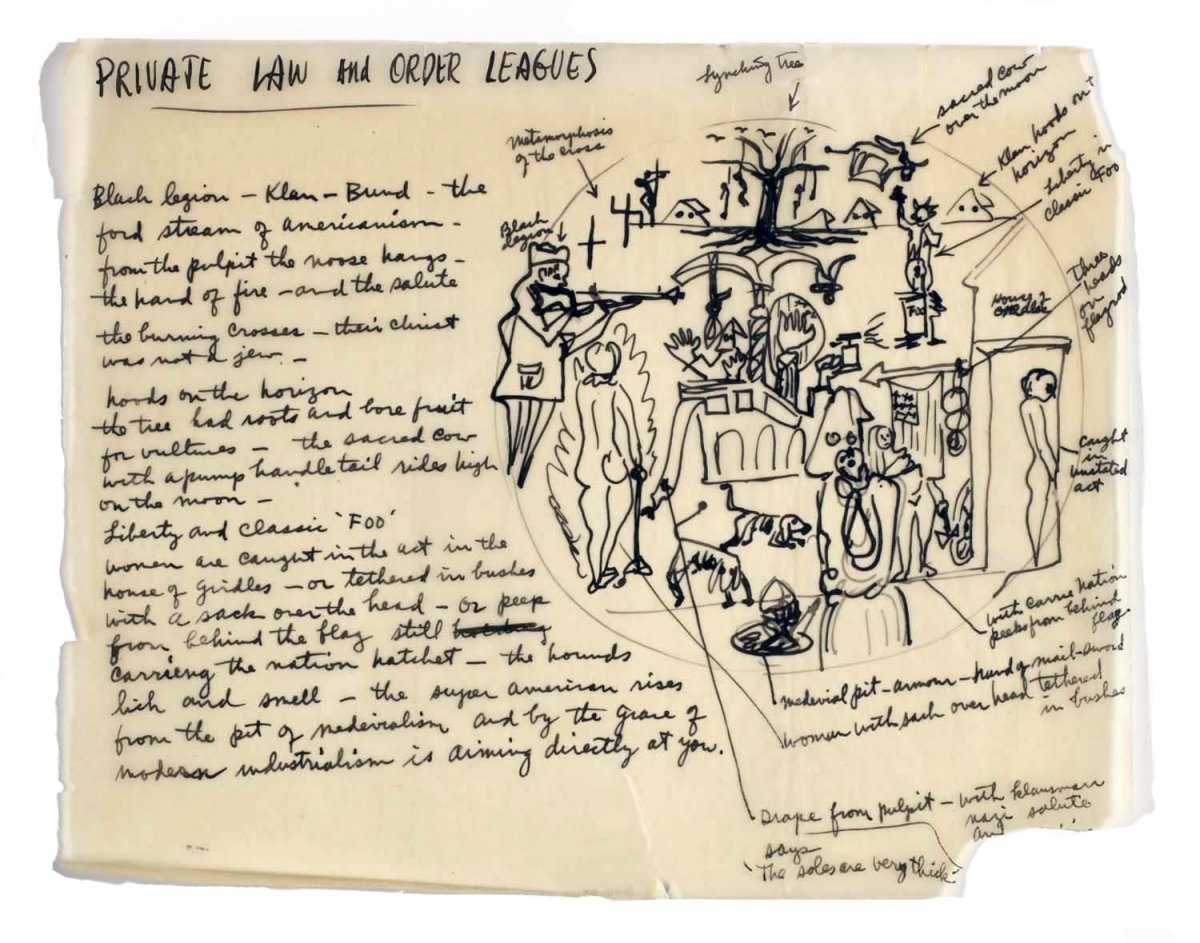 PRIVATE LAW AND ORDER LEAGUES
Black legion – Klan – Bund – the
ford stream of americanism –
from the pulpit the noose hangs –
the hand of fire – and the salute
the burning crosses – their christ
was not a jew –
hoods on the horizon
the tree had roots and bore fruit
for vultures – the sacred cow
with a pump handle tail rides high
on the moon –
Liberty and classic 'FOO'
women are caught in the act in the
house of girdles – or tethered in bushes
with a sack over the head – or peep
from behind the flag still
carrieng the nation hatchet – the hounds
lick and smell – the super american rises
from the pit of medeivalism and by the grace of
modern industrialism is aiming directly at you.
lynching tree
sacred cow
over the moon
Klan hoods on
horizon
Liberty in
Classic FOO
metamorphosis
of the cross
Black
legion
three
heads
on
flagrod
HOUSE OF
GIRDLES
FOO
caught
in
unstated
act
with carrie nation
peeks from behind
flag
medevial pit – armour – hand of mail – sword
woman with sack over head tethered
in bushes
Drape from pulpit – with klansman
nazi salute
and
says
"The soles are very thick"